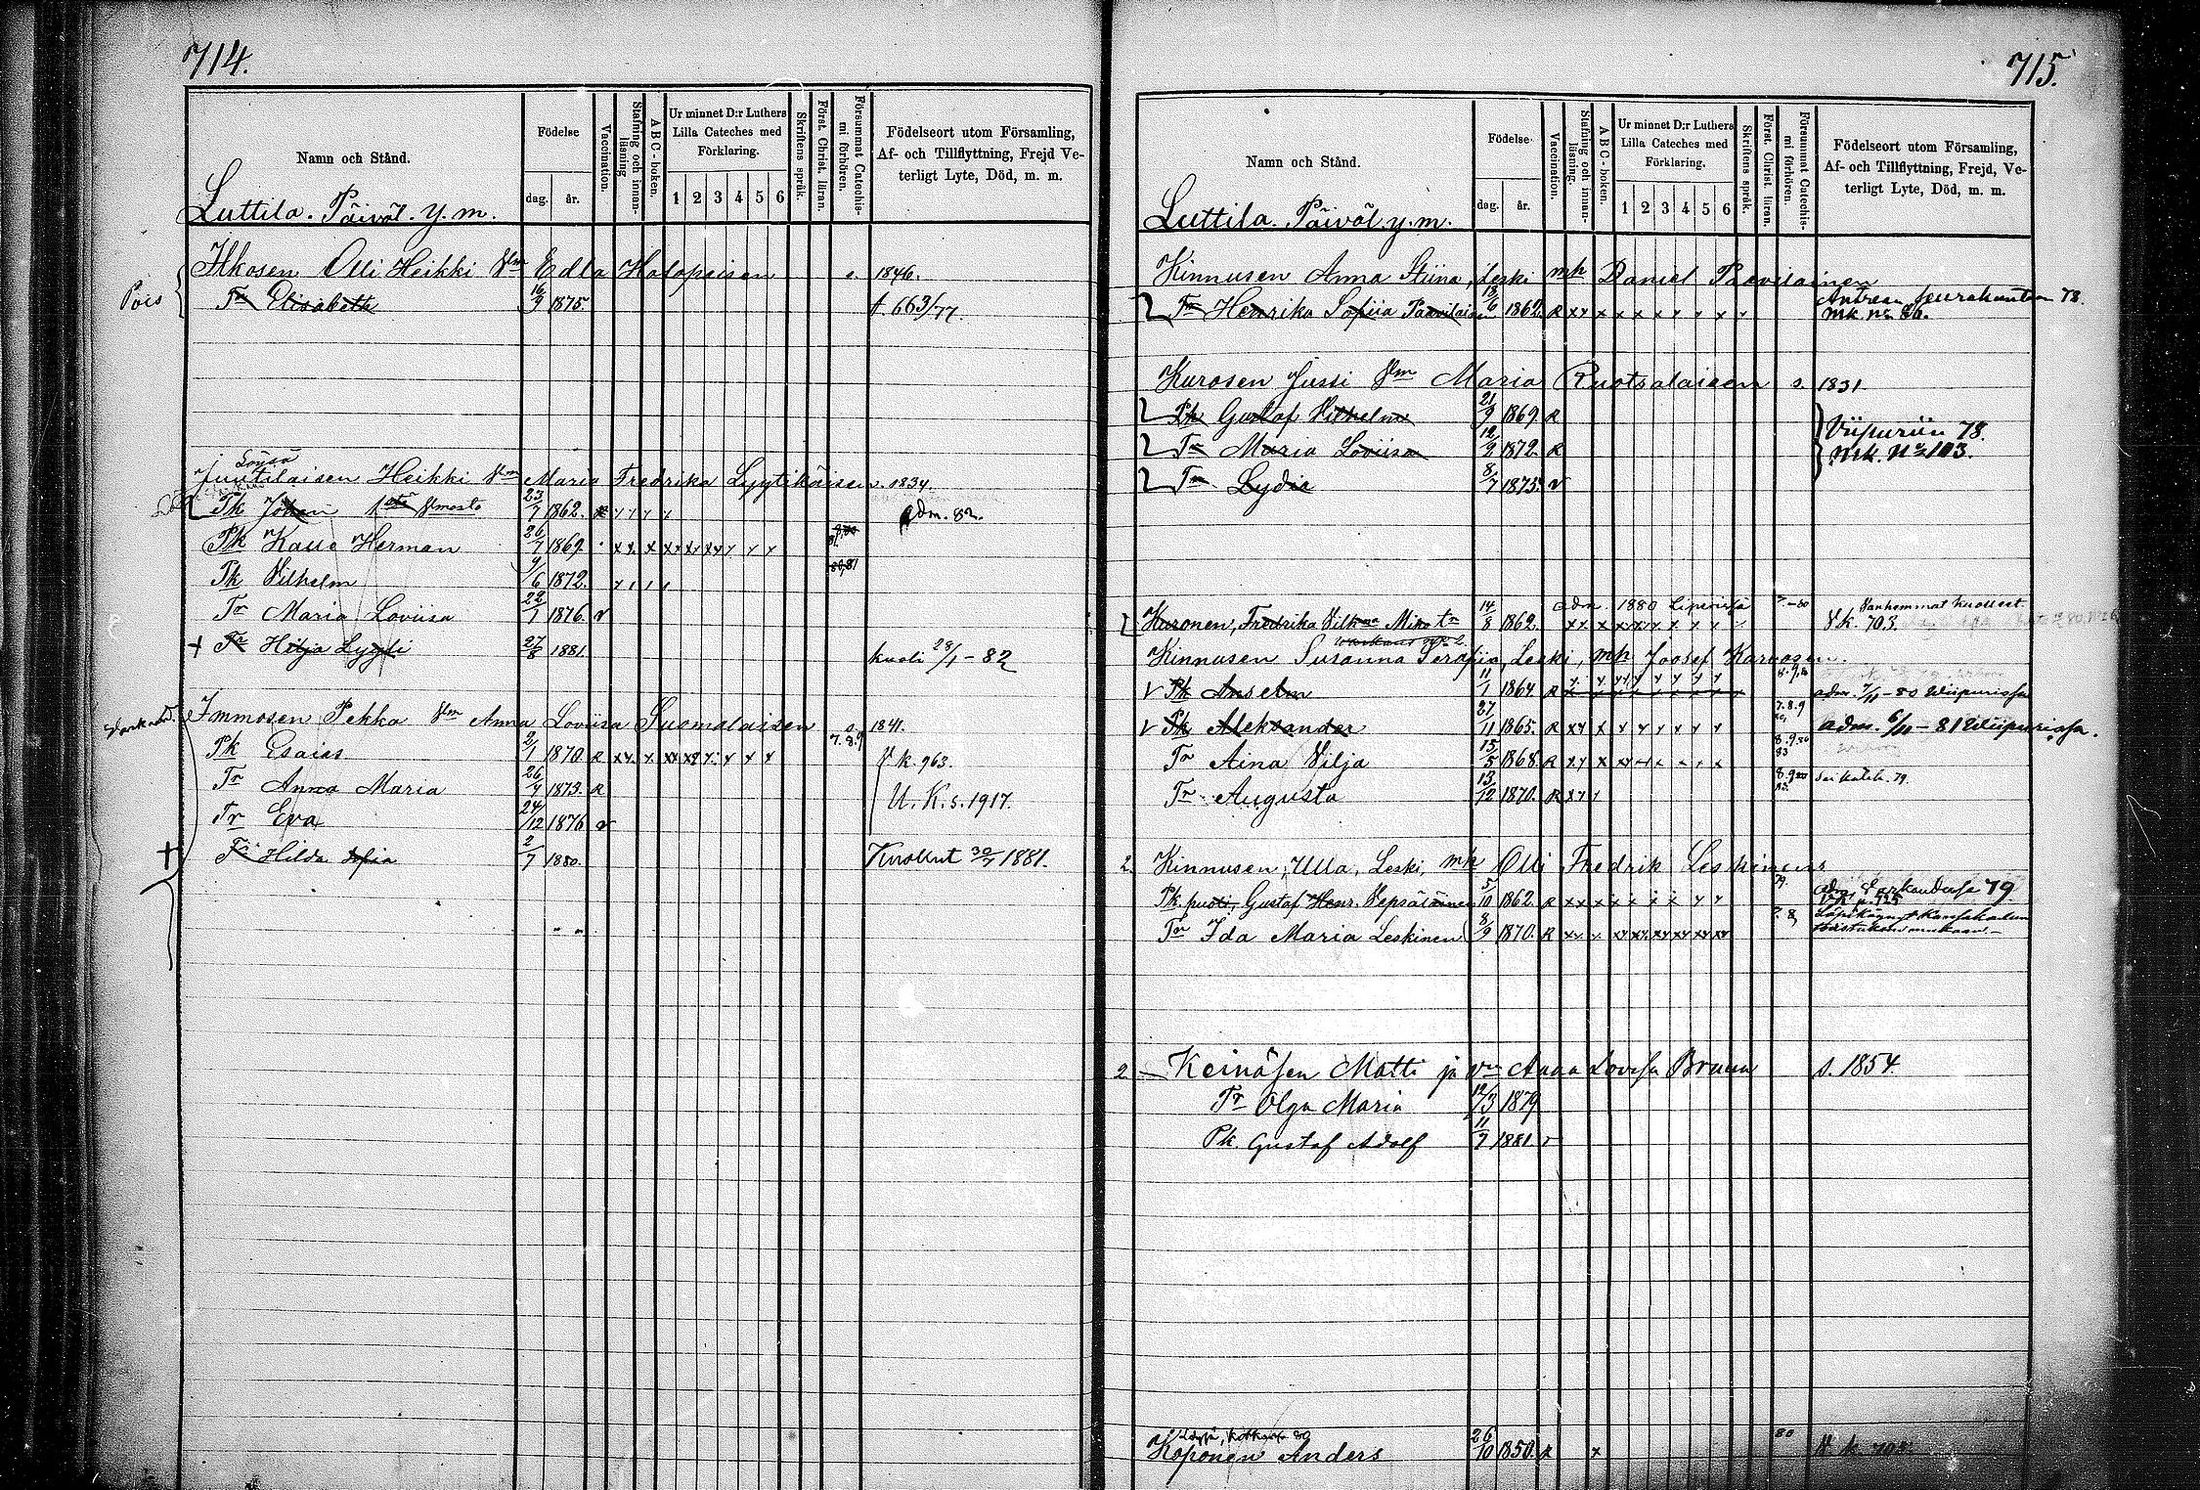 714.
Namn och Stånd.
Födelse
dag.
år.
Vaccination.
Stafning och innanläsning
ABC-boken.
Ur minnet D:r Luthers Lilla Cateches med Förklaring.
1 2 3 4 5 6
Skriftens språk.
Först. Christ. läran.
Försummat Catechismi förhören.
Födelseort utom Församling,
Af- och Tillflyttning, Frejd Ve-
terligt Lyte, Död, m. m.
Luttila. Päivöl. y. m.
Ilkosen Olli Heikki Vm Edla Halopaisen s. 1846.
Pois Tr Elisabeth 16/9 1875. † 663/77.
Lovisa
Juutilaisen Heikki Vm Maria Fredrika Lyytikäisen. 1834.
Pk Johan 23/7 1862. adm. 82.
Pk Kalle Herman 26/7 1869.
80,81
Pk Vilhelm 9/6 1872.
Tr Maria Loviisa 22/1 1876. v
+ Tr Hilja Lyyli 27/8 1881. kuoli 28/1 - 82
Immosen Pekka Vm Anna Loviisa Suomalaisen s. 1841.
Pk Esaias 2/1 1870. R 7.8.9 V k. 963.
Tr Anna Maria 26/4 1873. R U. K. s. 1917.
Tr Eva 24/12 1876 v
+ Tr Hilda Sofia 2/7 1880. Kuollut 30/7 1881.
715.
Namn och Stånd.
Födelse
dag.
år.
Vaccination.
Stafning och innanläsning.
ABC-boken.
Ur minnet D:r Luthers Lilla Cateches med Förklaring.
1 2 3 4 5 6
Skriftens språk.
Först. Christ. läran.
Försummat Catechismi förhören.
Födelseort utom Församling,
Af- och Tillflyttning, Frejd, Ve-
terligt Lyte, Död, m. m.
Luttila. Päivöl. y. m.
Kinnusen Anna Stiina, leski mk Daniel Paavilainen
Tr Henrika Sofiia Paavilainen 18/6 1862. R x x x x x x x x Antrean seurakuntaan 78.
mk. no 86.
Kurosen Jussi Vm Maria Ruotsalaisen s. 1831
Pk Gustaf Vilhelm 21/9 1869. R
Viipuriin 78.
Tr Maria Loviisa 12/2 1872. R mk. No 103.
Tr Lydia 8/7 1875. v
adm. 1880 Liperissä Vanhemmat kuolleet
Kuronen, Fredrika Vilh Mina tr 14/8 1862. V k. 703.
Kinnusen Susanna Serafiia, Leski, mk Joosef Karvosen.
V Pk Anselm 11/1 1864. R adm. 7/11 - 80 Wiipurissa
V Pk Aleksander 27/11 1865. R 7.8.9 adm. 6/11 - 81 Wiipurissa.
Tr Aina Vilja 15/5 1868. R
Tr Augusta 13/12 1870. R sei katek. 79.
2. Kinnusen, Ulla, Leski, mk Olli Fredrik Leskinens
Pk. puoli, Gustaf Henr. Vepsäläinen 5/10 1862. R 79.
Tr Ida Maria Leskinen 8/9 1870. R
2 - Keinäsen Matti ja vm Anna Lovisa Bruun s. 1854.
Tr Olga Maria 12/3 1879
Pk. Gustaf Adolf 11/7 1881. v
Koponen Anders 26/10 1850. R x 80 V k 708.